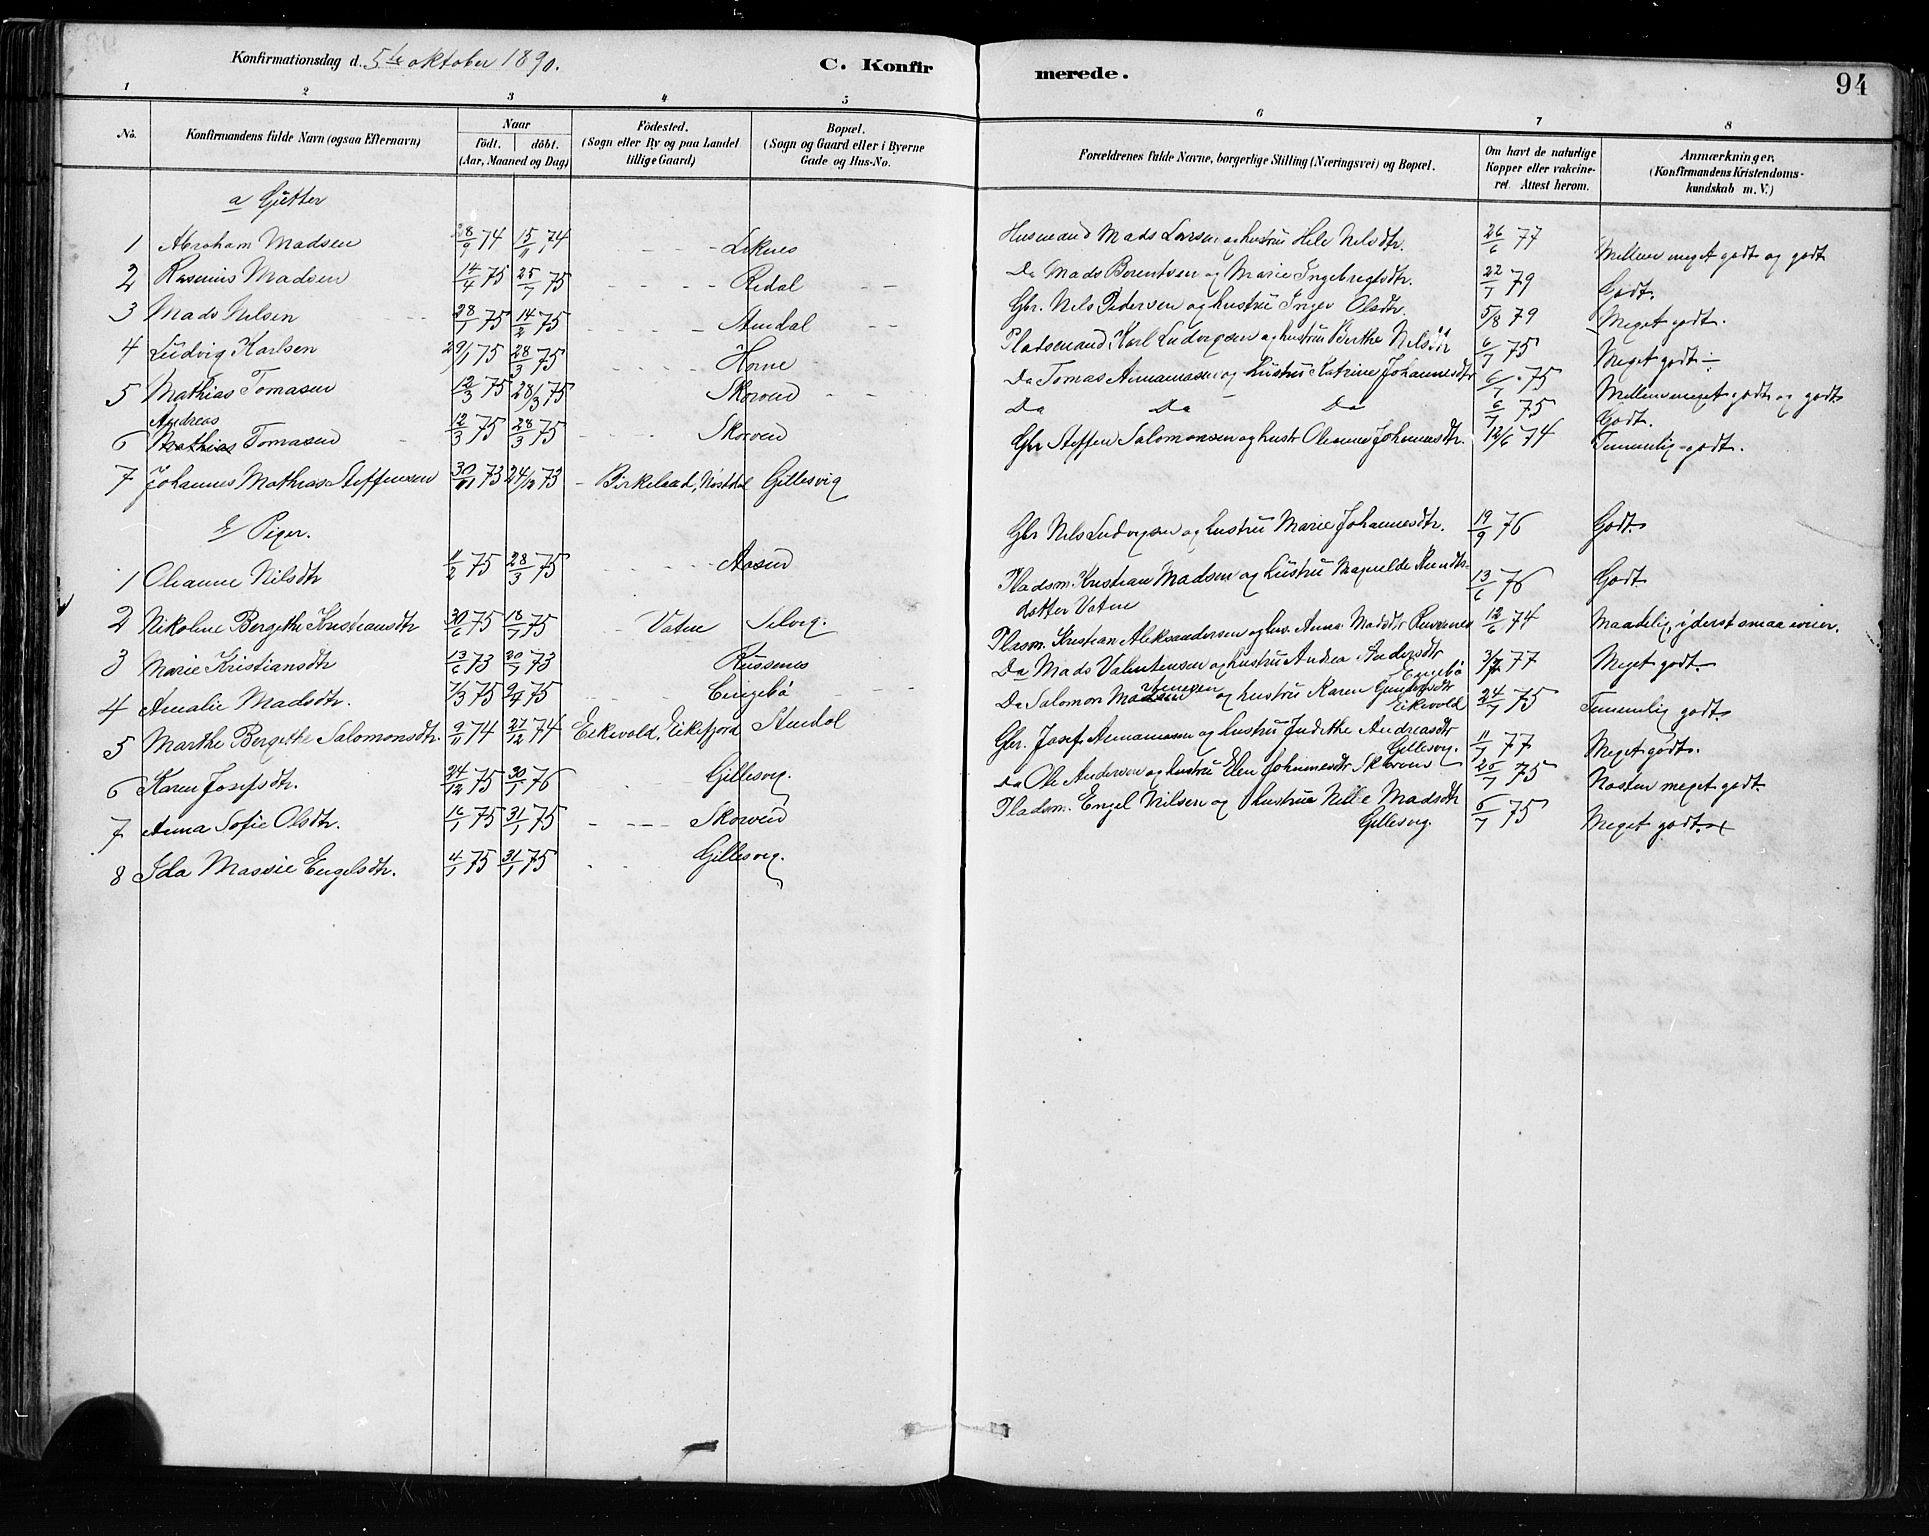 Konfirmationsdag d. 5te oktober 1890.
C. Konfirmerede.
94
1 2 3 4 5 6 7 8
No.
Konfirmandens fulde Navn (ogsaa Efternavn)
Naar
födt. döbt.
(Aar, Maaned og Dag)
Födested.
(Sogn eller By og paa Landet
tillige Gaard)
Bopæl.
(Sogn og Gaard eller i Byerne
Gade og Hus-No.
Forældrenes fulde Navne, borgerlige Stilling (Næringsvei) og Bopæl.
Om havt de naturlige
Kopper eller vakcine-
ret. Attest herom.
Anmærkninger.
(Konfirmandens Kristendoms-
kundskab m. V.)
a Gutter
1 Abraham Madsen 28/9 74 15/11 74 Leknes Husmand Mads Larsen og hustru Hele Nilsdtr. 26/6 77 Mellem meget godt og godt
2 Rasmus Madsen 14/4 75 25/7 75 Redal Do Mads Berentsen og Marie Ingebregtsdtr. 22/7 79 Godt.
3 Mads Nilsen 28/1 75 14/2 75 Aindal Gbr. Nils Pedersen og hustru Inger Olsdtr. 5/8 79 Meget godt.
4 Ludvig Karlsen 29/1 75 28/3 75 Horne Pladsemand Karl Ludvigsen og hustru Berthe Nilsdtr 6/7 75 Meget godt ÷
5 Mathias Tomasen 12/3 75 28/3 75 Skorven Do Tomas Annaniasen og hustru Katrine Johannesdtr 6/7 75 Mellem meget godt og godt
Andreas
6 Mathias Tomasen 12/3 75 28/3 75 Skorven Do Do Do 6/7 75 Godt.
7 Johannes Mathias Steffensen 30/11 73 24/12 73 Birkeland, Nordal Gillesvig Gbr Steffen Salomonsen og hustr Oleanne Johannesdtr. 12/6 74 Temmelig godt.
b/ Piger.
1 Oleanne Nilsdtr 11/2 75 28/3 75 Aasen Gbr Nils Ludvigsen og hustru Marie Johannesdtr. 19/9 76 Godt.
2 Nikoline Bergithe Kristiansdtr 30/6 75 18/7 75 Vatne Selvig. Pladsm. Kristian Madsen og hustru Magnelde Ands-
datter Vatne 13/6 76 Godt.
3 Marie Kristiansdtr 13/6 73 20/7 73 Russenes Plasm. Kristian Aleksandersen og hus. Anna Madsdtr Russenes 12/6 74 Maadelig, yderst smaa evner.
4 Amalie Madsdtr. 7/3 75 9/4 75 Eingebö Do Mads Valentensen og hustru Andrea Andersdtr
Engebö 3/7 77 Meget godt
5 Marthe Bergithe Salomonsdtr. 9/11 74 27/12 74 Eikevold, Eikefjord Stendal Do Salomon Madsen og hustru Karen Gundersdtr
Eikevold 24/7 75 Temmelig godt.
6 Karen Josefsdtr. 24/12 75 30/1 76 Gillesvig. Gbr. Josef Annaniasen og hustru Judithe Andreasdtr
Gillesvig. 11/7 77 Meget godt.
7 Anna Sofie Olsdtr. 16/1 75 31/1 75 Skorven Do Ole Andersen og hustru Elen Johannesdtr Skorven 26/7 75 Næsten meget godt
8 Ida Massie Engelsdtr. 4/1 75 31/1 75 Gillesvig. Pladsm. Engel Nilsen og hustrue Nille Madsdtr
Gillesvig. 6/7 75 Meget godt